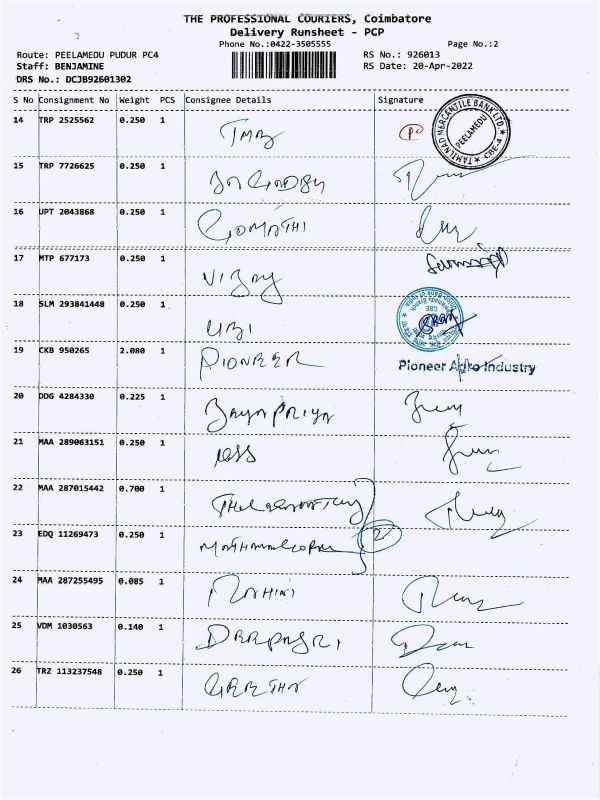 THE PROFESSIONAL COURIERS, Coimbatore
Delivery Runsheet - PCP
Phone No.:0422-3505555 Page No.:2
Route: PEELAMEDU PUDUR PC4 RS No.: 926013
Staff: BENJAMINE RS Date: 20-Apr-2022
DRS No.: DCJB92601302
S No Consignment No Weight PCS Consignee Details Signature
14 TRP 2525562 0.250 1 TMB
TAMILNAD MERCANTILE BANK LTD.
PEELAMEDU
CBE-4
15 TRP 7726625 0.250 1
16 UPT 2043868 0.250 1 GOMATHI
17 MTP 677173 0.250 1 VIJAY
18 SLM 293841448 0.250 1 UBI
19 CKB 950265 2.080 1 PIONEER Pioneer Agro Industry
20 DDG 4284330 0.225 1 Jayapriya
21 MAA 289063151 0.250 1
22 MAA 287015442 0.700 1
23 EDQ 11269473 0.250 1 2
24 MAA 287255495 0.085 1
25 VDM 1030563 0.140 1
26 TRZ 113237548 0.250 1